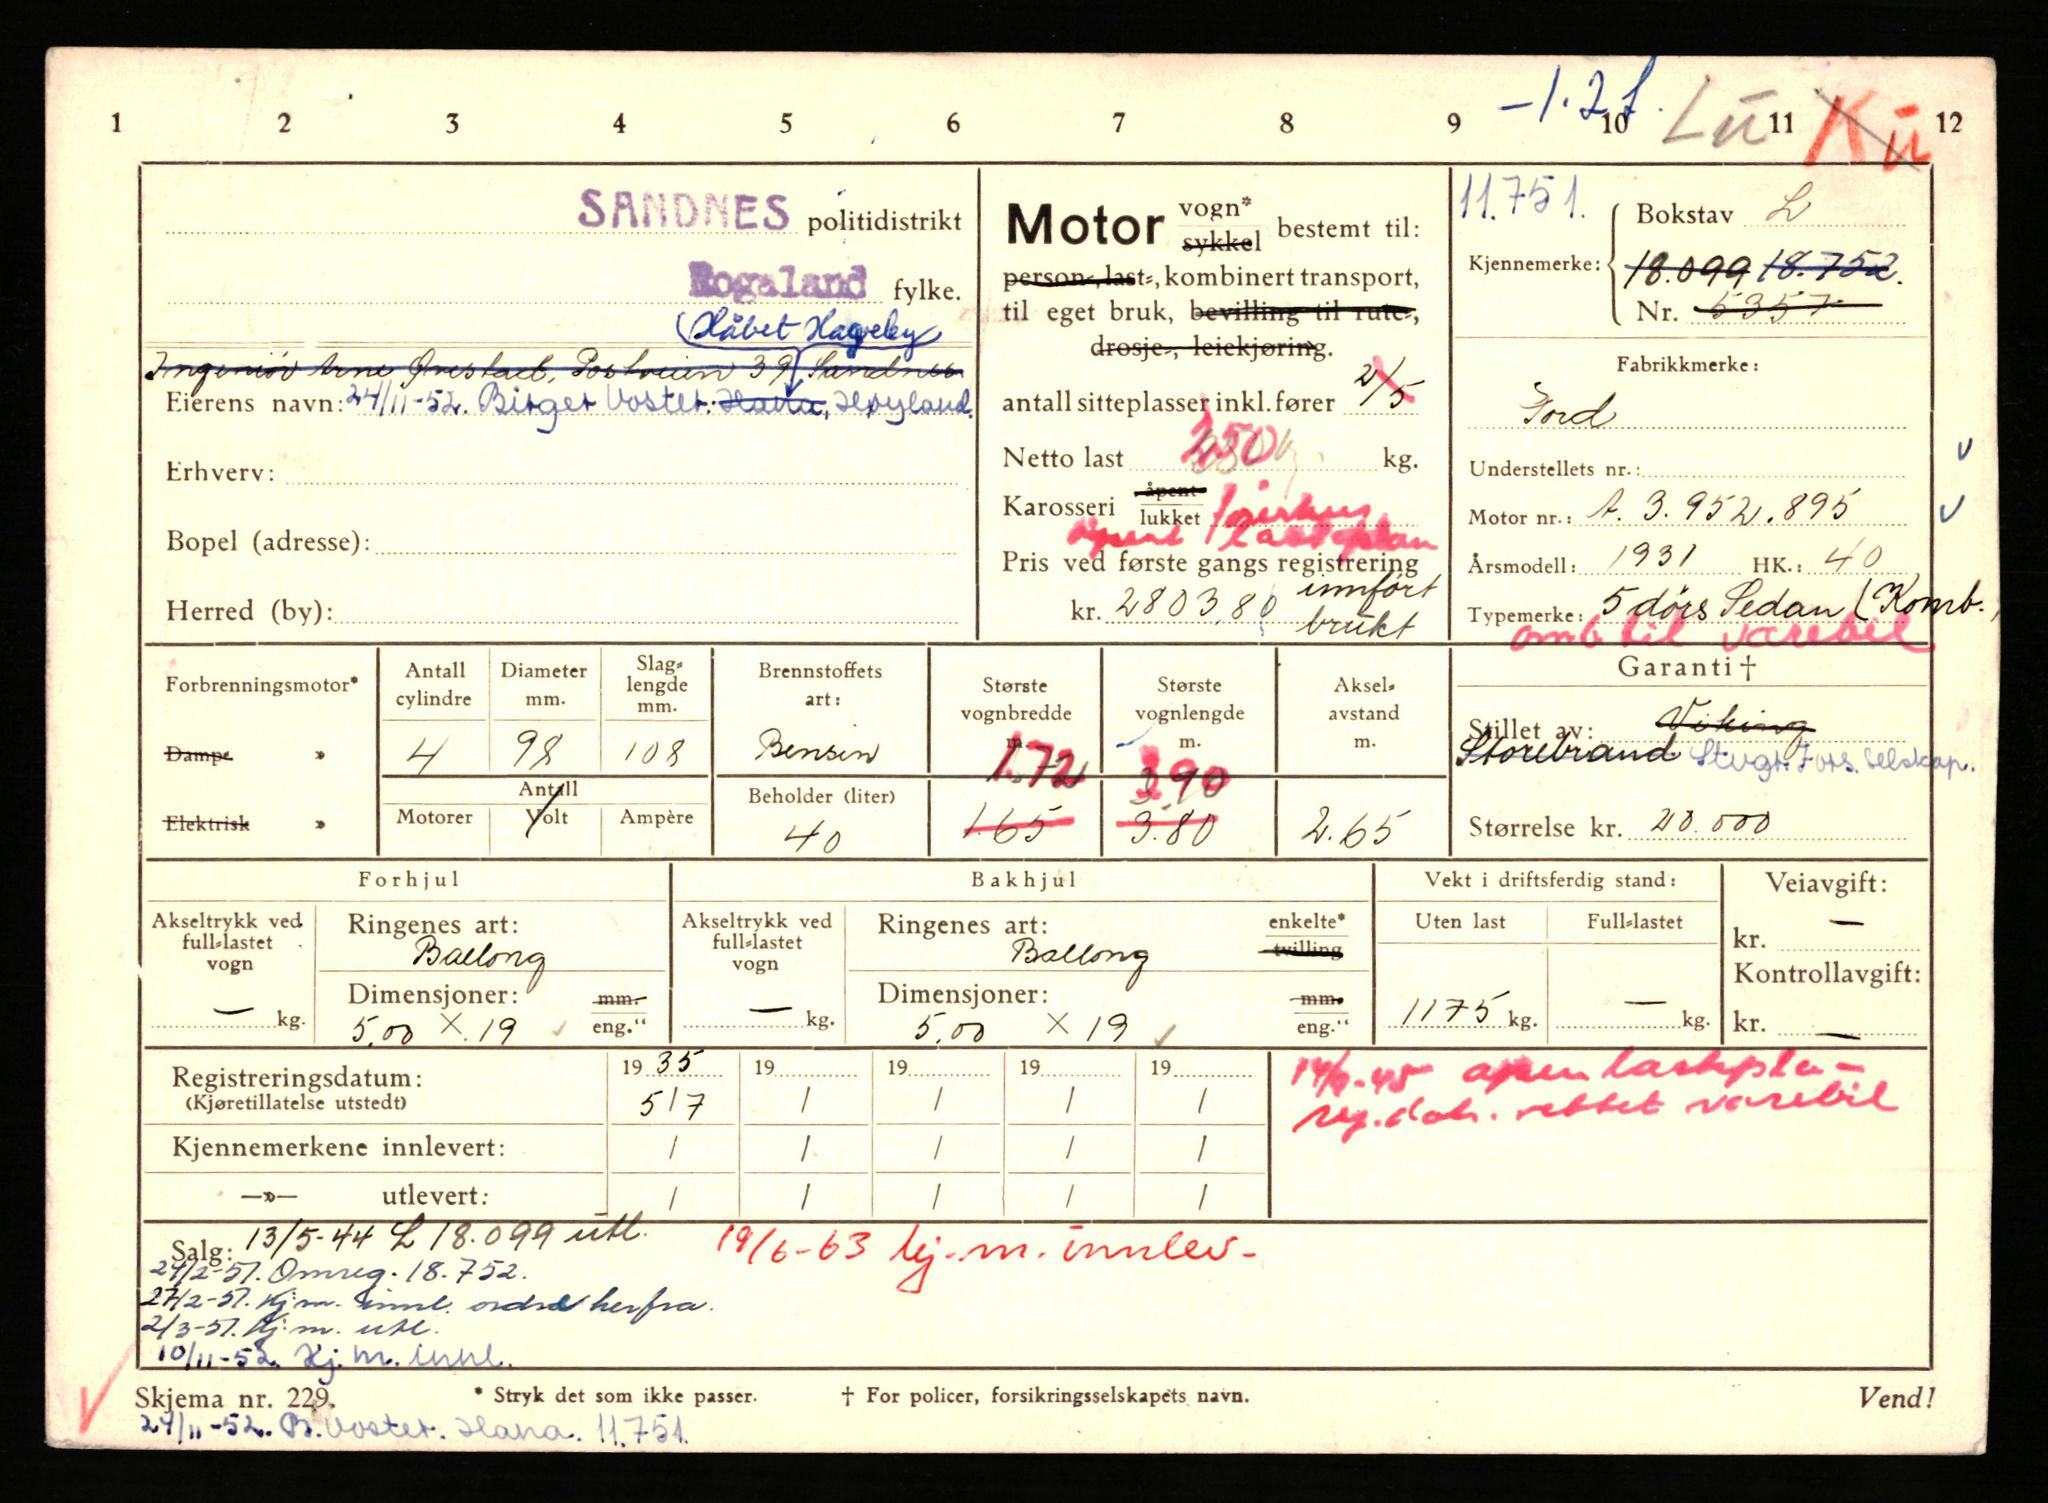 -1.27. Lü Kü
1 2 3 4 5 6 7 8 9 10 11 12
SANDNES politidistrikt
Rogaland fylke.
(Håbet Hageby
Ingeniør Arne Ørestad, Postveien 39, Sandnes
Eierens navn: 24/11-52. Birger Voster. Hana, Høyland.
Erhverv:
Bopel (adresse):
Herred (by):
Motor vogn* sykkel bestemt til:
person-, last-, kombinert transport,
til eget bruk, bevilling til rute-,
drosje-, leiekjøring.
antall sitteplasser inkl. fører 2/5
Netto last 450 kg.
Karosseri åpent lukket førerhus
åpent lasteplan
Pris ved første gangs registrering
kr. 2803,80 innført
brukt
11.751.
Bokstav L
Kjennemerke: 18.099 18.752.
Nr. 5357
Fabrikkmerke:
Ford
Understellets nr.: v
Motor nr.: A. 3.952.895 v
Årsmodell: 1931 HK.: 40
Typemerke: 5 dørs Sedan (Komb.)
omb til varebil
Forbrenningsmotor*
Dampe »
Elektrisk »
Antall cylindre
4
Diameter mm.
98
Slaglengde mm.
108
Antall
Motorer Volt Ampère
Brennstoffets art:
Bensin
Beholder (liter)
40
Største vognbredde m.
1.72
1.65
Største vognlengde m.
3.90
3.80
Aksel-avstand m.
2.65
Garanti †
Stillet av: Viking
Storebrand Stvgr. Fors. selskap.
Størrelse kr. 20.000
Forhjul
Akseltrykk ved full-lastet vogn
— kg.
Ringenes art:
Ballong
Dimensjoner: mm.
5.00 × 19 eng."
Bakhjul
Akseltrykk ved full-lastet vogn
— kg.
Ringenes art: enkelte*
Ballong tvilling
Dimensjoner: mm.
5.00 × 19 eng."
Vekt i driftsferdig stand:
Uten last Full-lastet
1175 kg. — kg.
Veiavgift:
kr. —
Kontrollavgift:
kr. —
Registreringsdatum: 1935 19 19 19 19
(Kjøretillatelse utstedt) 5/7 / / / /
Kjennemerkene innlevert: / / / / /
—»— utlevert: / / / / /
14/9-45 åpen lasteplan
reg. dok. rettet varebil
Salg: 13/5-44 L 18.099 utl.
19/6-63 kj.m. innlev-
24/2-51. Omreg. 18.752.
27/2-51. Kj.m. innl. ordre herfra.
2/3-51. Kj.m. utl.
10/11-52. Kj.m. innl.
Skjema nr. 229. * Stryk det som ikke passer. † For policer, forsikringsselskapets navn. Vend!
24/11-52. B. Voster. Hana. 11.751.